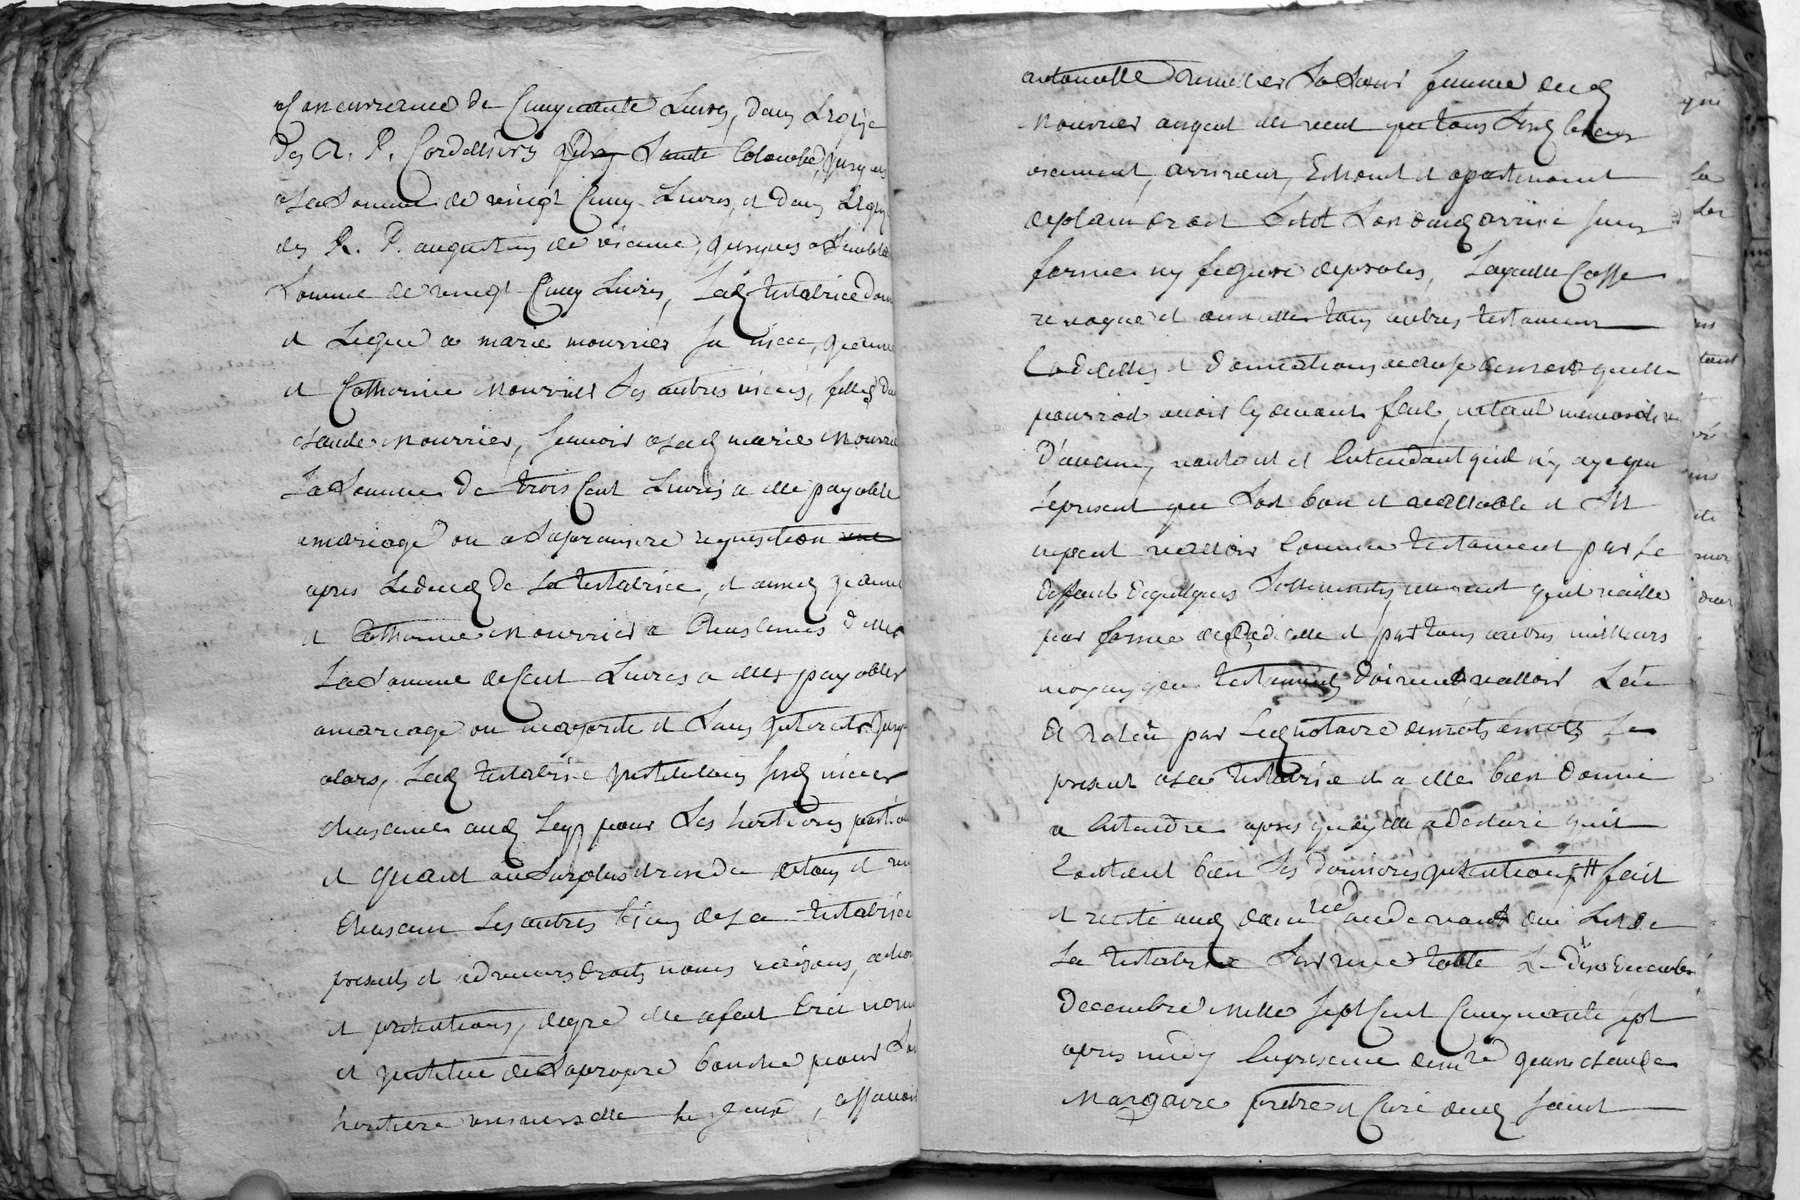 Concurrence de Cinquante Livres, dans Leglize
des R. P. Cordelliers Sainte Colombe, jusques
a la Somme de vingt Cinq Livres, et dans Legli
des R. P. augustins de vienne, jusques a Semblable
Somme de vingt Cinq Livres, Lad testatrice donne
et Legue a marie mourrier sa niece, jeanne
et Catherine Mourrier Ses autres nieces, filles dud
claude Mourrier, scavoir a lad marie Mourrier
La Somme de trois Cent Livres a elle payable
a mariage ou a Sa premiere requisition
apres Le deced de La testatrice, et ausd jeanne
et Catherine Mourrier a Chascunes d'elles
La Somme de Cent Livres a elles payables
a mariage ou majorité et Sans interets jusqu
alors, Lad testatrice instituant sesd nieces
chascunes aud Legs pour Ses heritieres particul
et quant au Surplus et reside de tous et un
Chascun Les autres biens de La testatrice
presents et advenirs droits noms raisons, actions
et pretentions, de gré elle a fait créé nommé
et institue de Sa propre bouche pour Son
heritiere universelle , assavoir
antoinette Sa Soeur femme dud
Mourrier argent elle veut que tous Sesd biens
viennent, arrivent, Echoient et apartiennent
de plain droit Sitot Son deced arrivé sans
forme ny figure de proces, Laquelle Casse
revoque et annulle tous autres testaments
Codicilles et donnations a cause de mort quelle
pourroit avoir cy devant fait, n'etant memorative
D'aucun, voulant et Entendant quil n'y aye que
Le present que Soit bon et vallable et S'il
ne peut valloir Comme testament par Le
deffaut de quelques Sollemnités, veut quil vaille
par forme de Codicille et par tous autres meilleurs
moyens que testaments doivent valloir Leu
Et Releu par Led notaire de mots a mots Le
present a La testatrice et a elle bien donné
a Entendre apres quoy elle a declaré quil
Contient bien Ses dernieres intentions # fait
et recité aud au devant du Lit de
La testatrice Sur une table Le
Decembre Mille Sept Cent Cinquante Sept
apres midy En presence de mre jean claude
Margaire pretre et Curé dud Saint